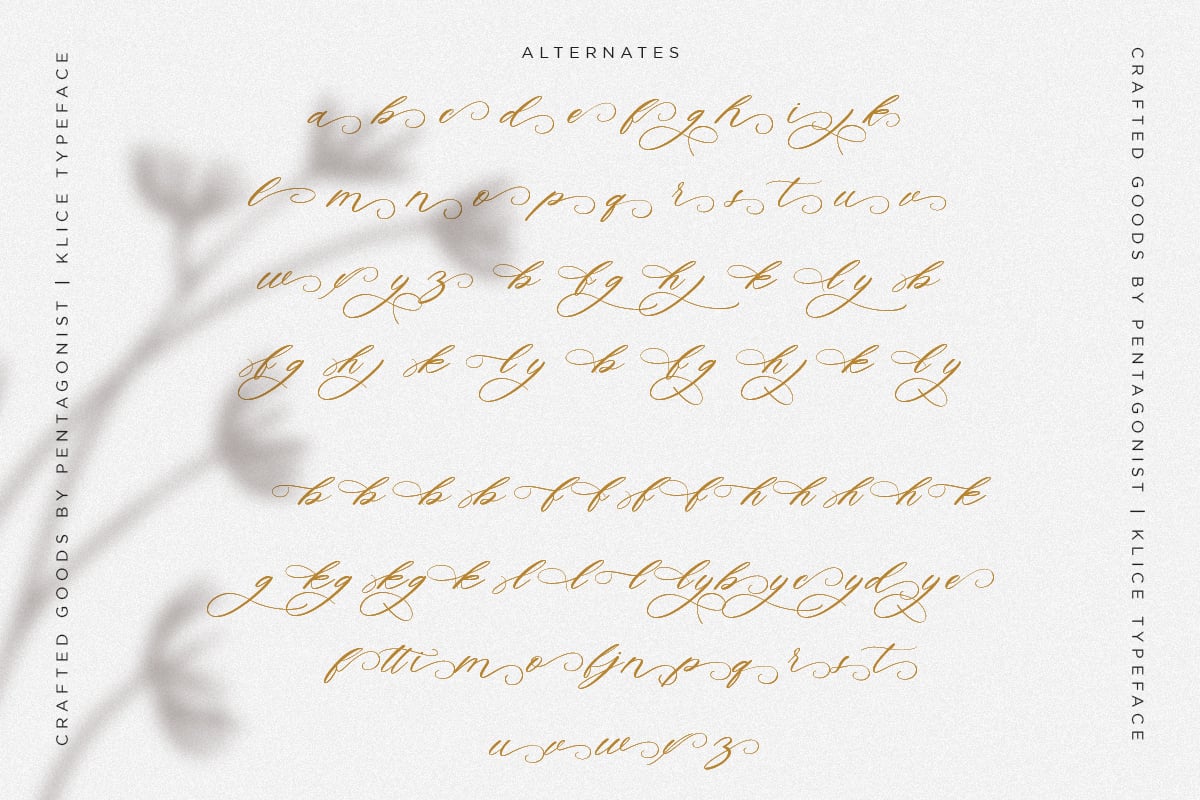 ALTERNATES
CRAFTED GOODS BY PENTAGONIST | KLICE TYPEFACE
a b c d e f g h i j k
l m n o p q r s t u v
w x y z b f g h j k l y b
f g h j k l y b f g h j k l y
b b b b f f f f h h h h k
g k g k g k l l l l y b y c y d y e
f tt i m o l j n p q r s t
u v w x z
CRAFTED GOODS BY PENTAGONIST | KLICE TYPEFACE